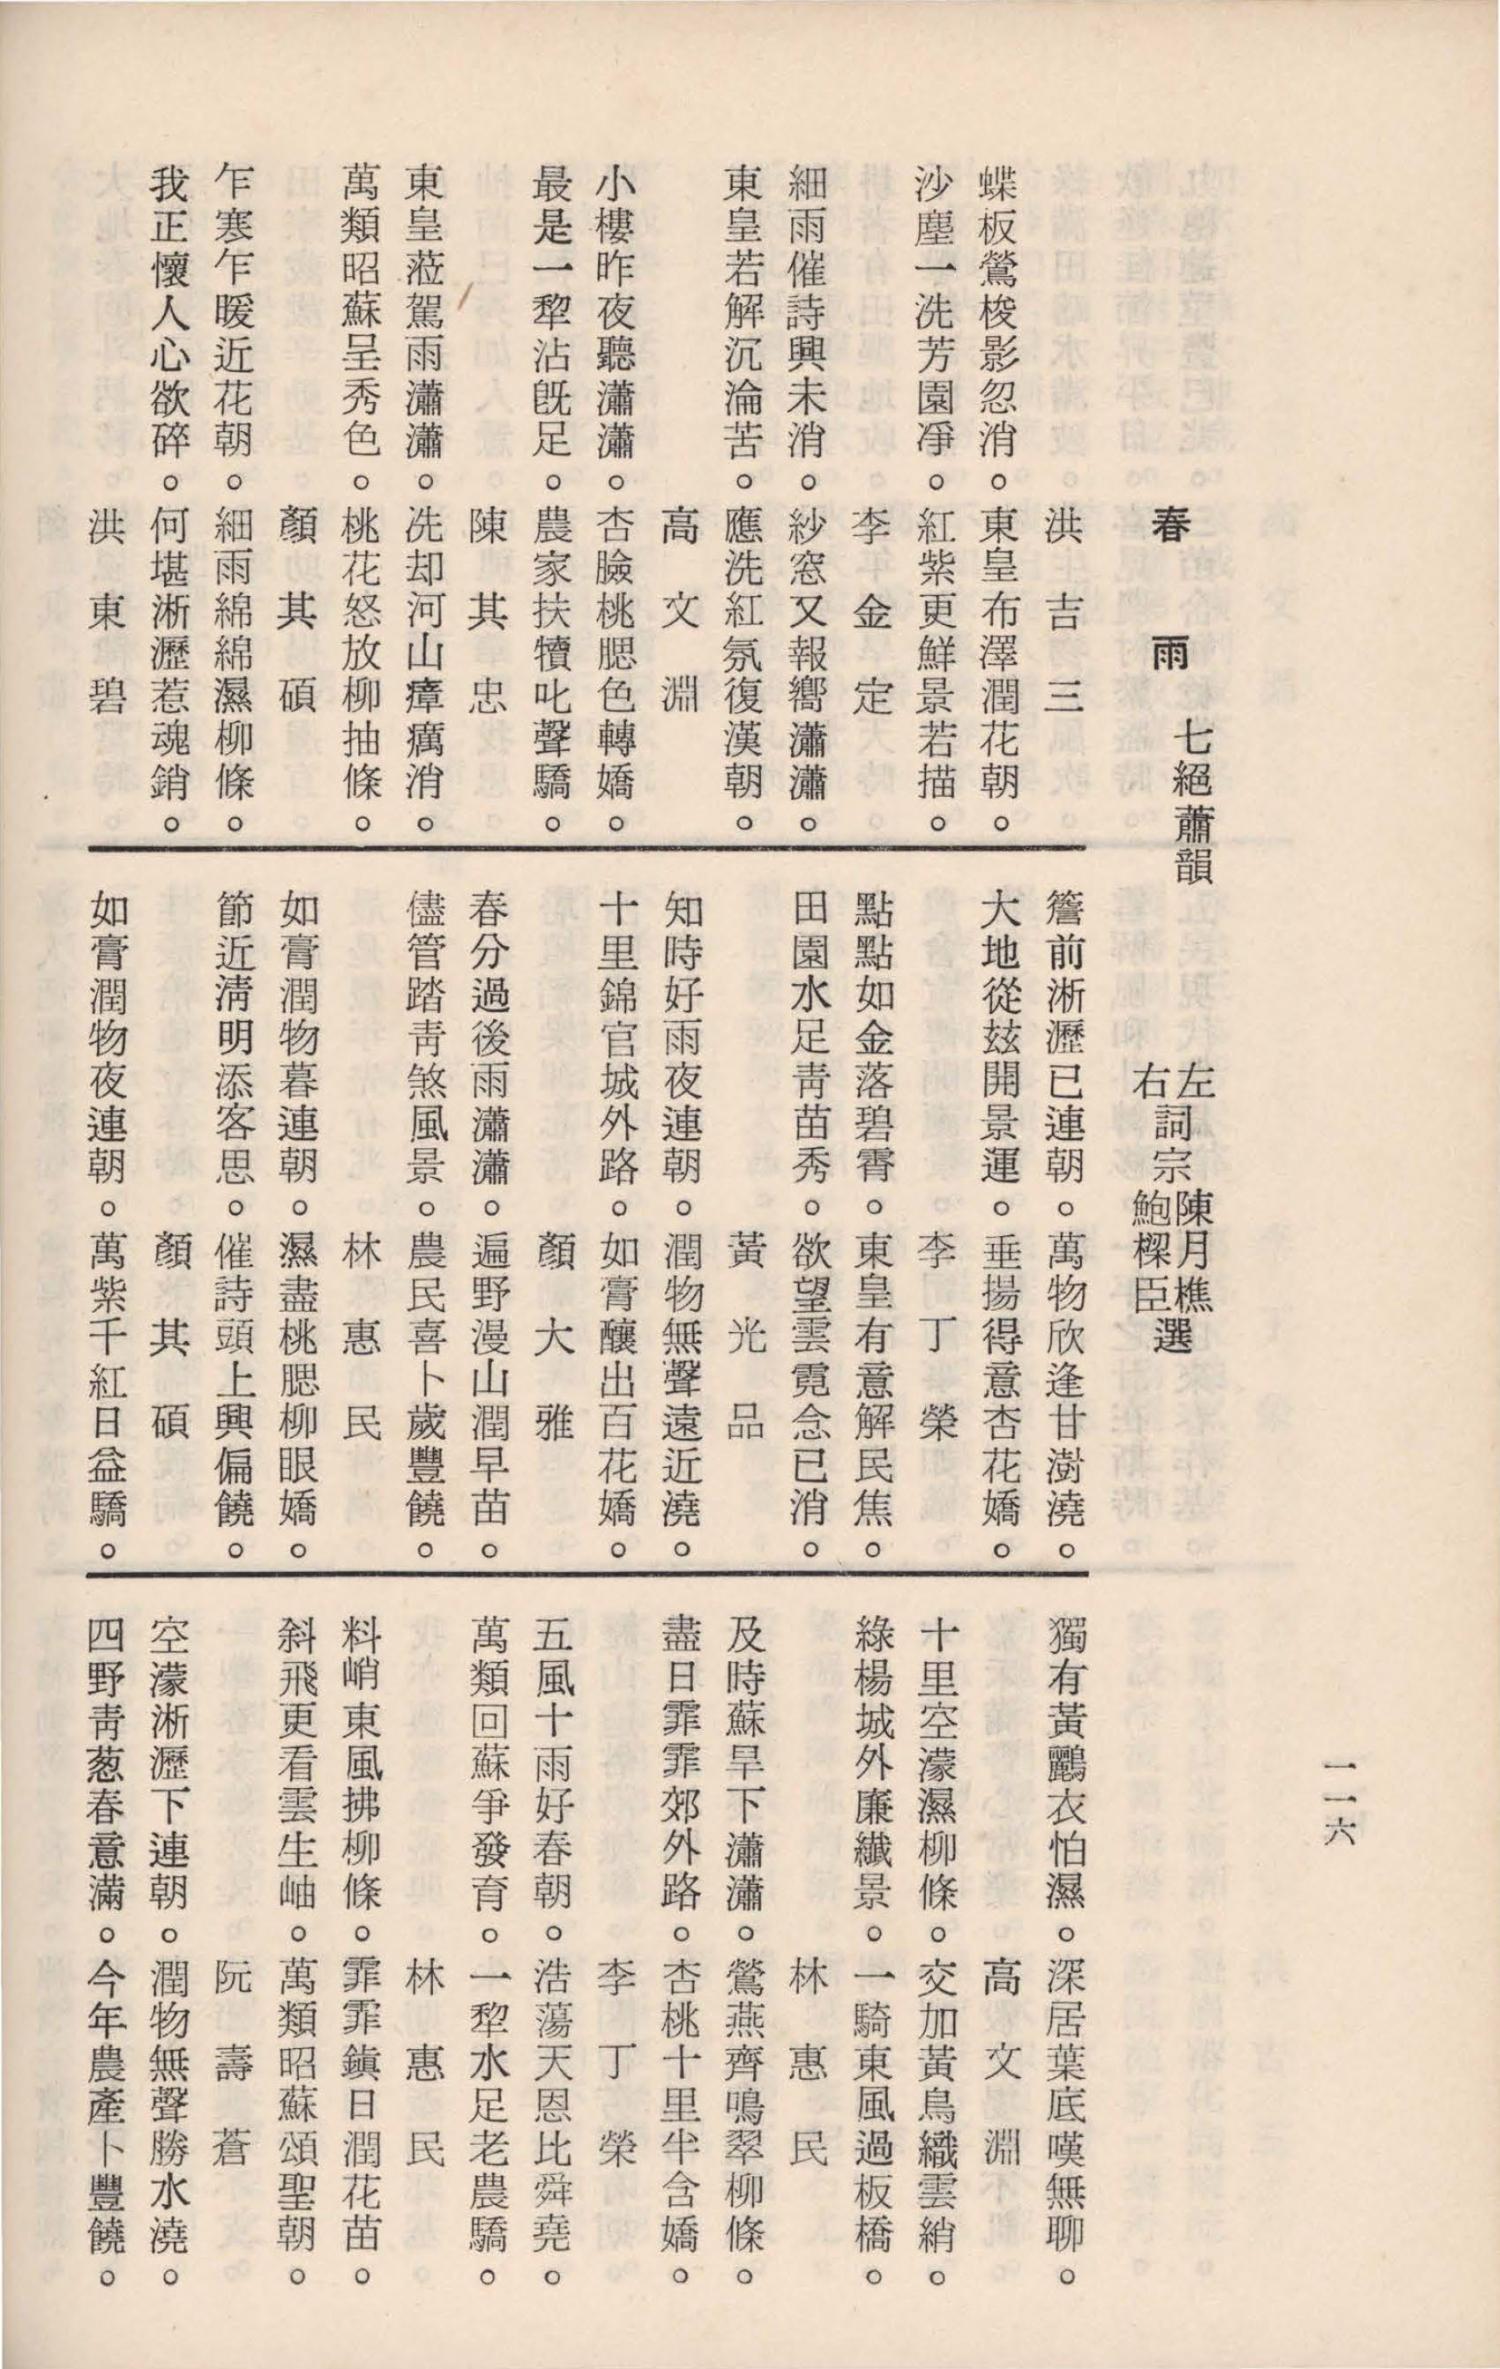 春雨 七絕蕭韻 左右詞宗 陳月樵 鮑樑臣 選
洪吉三
蝶板鶯梭影忽消。東皇布澤潤花朝。
沙塵一洗芳園淨。紅紫更鮮景若描。
李金定
細雨催詩興未消。紗窓又報嚮瀟瀟。
東皇若解沉淪苦。應洗紅氛復漢朝。
高文淵
小樓昨夜聽瀟瀟。杏臉桃腮色轉嬌。
最是一犂沾旣足。農家扶犢叱聲驕。
陳其忠
東皇蒞駕雨瀟瀟。洗却河山瘴癘消。
萬類昭蘇呈秀色。桃花怒放柳抽條。
顏其碩
乍寒乍暖近花朝。細雨綿綿濕柳條。
我正懷人心欲碎。何堪淅瀝惹魂銷。
洪東碧
簷前淅瀝已連朝。萬物欣逢甘澍澆。
大地從玆開景運。垂揚得意杏花嬌。
李丁榮
點點如金落碧霄。東皇有意解民焦。
田園水足靑苗秀。欲望雲霓念已消。
黃光品
知時好雨夜連朝。潤物無聲遠近澆。
十里錦官城外路。如膏釀出百花嬌。
顏大雅
春分過後雨瀟瀟。遍野漫山潤早苗。
儘管踏靑煞風景。農民喜卜歲豐饒。
林惠民
如膏潤物暮連朝。濕盡桃腮柳眼嬌。
節近淸明添客思。催詩頭上興偏饒。
顏其碩
如膏潤物夜連朝。萬紫千紅日益驕。
獨有黃鸝衣怕濕。深居葉底嘆無聊。
高文淵
十里空濛濕柳條。交加黃鳥織雲綃。
綠楊城外廉纖景。一騎東風過板橋。
林惠民
及時蘇旱下瀟瀟。鶯燕齊鳴翠柳條。
盡日霏霏郊外路。杏桃十里半含嬌。
李丁榮
五風十雨好春朝。浩蕩天恩比舜堯。
萬類回蘇爭發育。一犂水足老農驕。
林惠民
料峭東風拂柳條。霏霏鎭日潤花苗。
斜飛更看雲生岫。萬類昭蘇頌聖朝。
阮壽蒼
空濛淅瀝下連朝。潤物無聲勝水澆。
四野靑葱春意滿。今年農產卜豐饒。
一一六